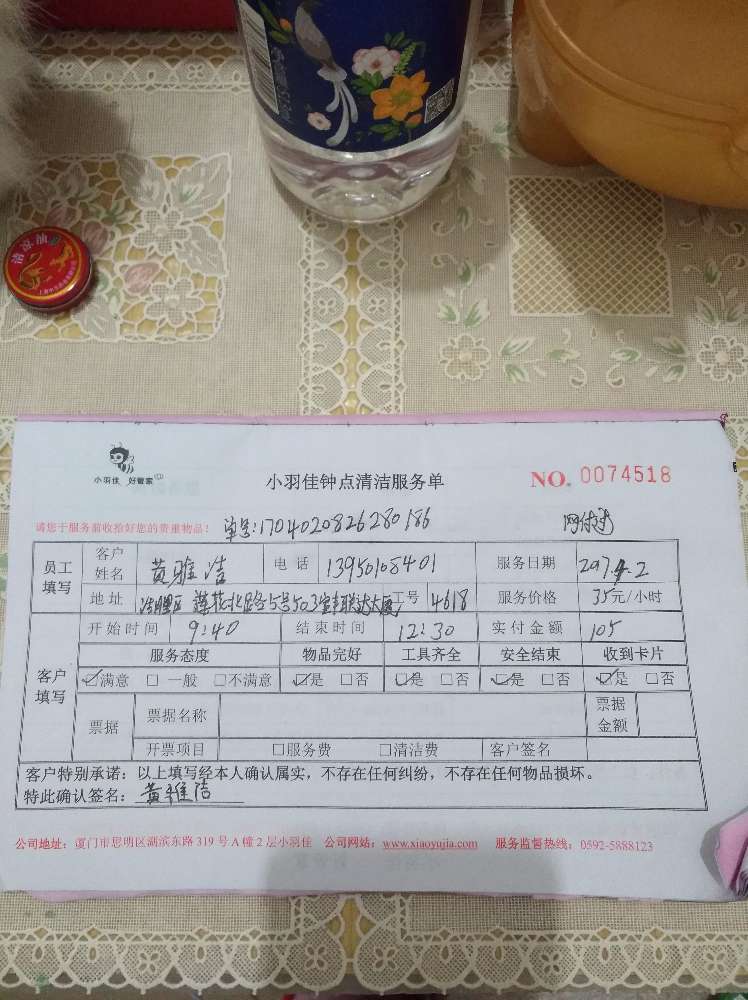 清凉油
小羽佳 好管家
小羽佳钟点清洁服务单
NO. 0074518
请您于服务前收拾好您的贵重物品！ 单号:1704020826280186 网付过
员工填写 客户姓名 黄雅洁 电话 13950108401 服务日期 2017.4.2
地址 莲花北路 5号503 联达大厦 工号 4618 服务价格 35元/小时
开始时间 9:40 结束时间 12:30 实付金额 105
客户填写 服务态度 物品完好 工具齐全 安全结束 收到卡片
☑满意 □一般 □不满意 ☑是 □否 ☑是 □否 ☑是 □否 ☑是 □否
票据 票据名称 票据金额
开票项目 □服务费 □清洁费 客户签名
客户特别承诺：以上填写经本人确认属实，不存在任何纠纷，不存在任何物品损坏。
特此确认签名：黄雅洁
公司地址：厦门市思明区湖滨东路 319 号 A 幢 2 层小羽佳 公司网站：www.xiaoyujia.com 服务监督热线：0592-5888123